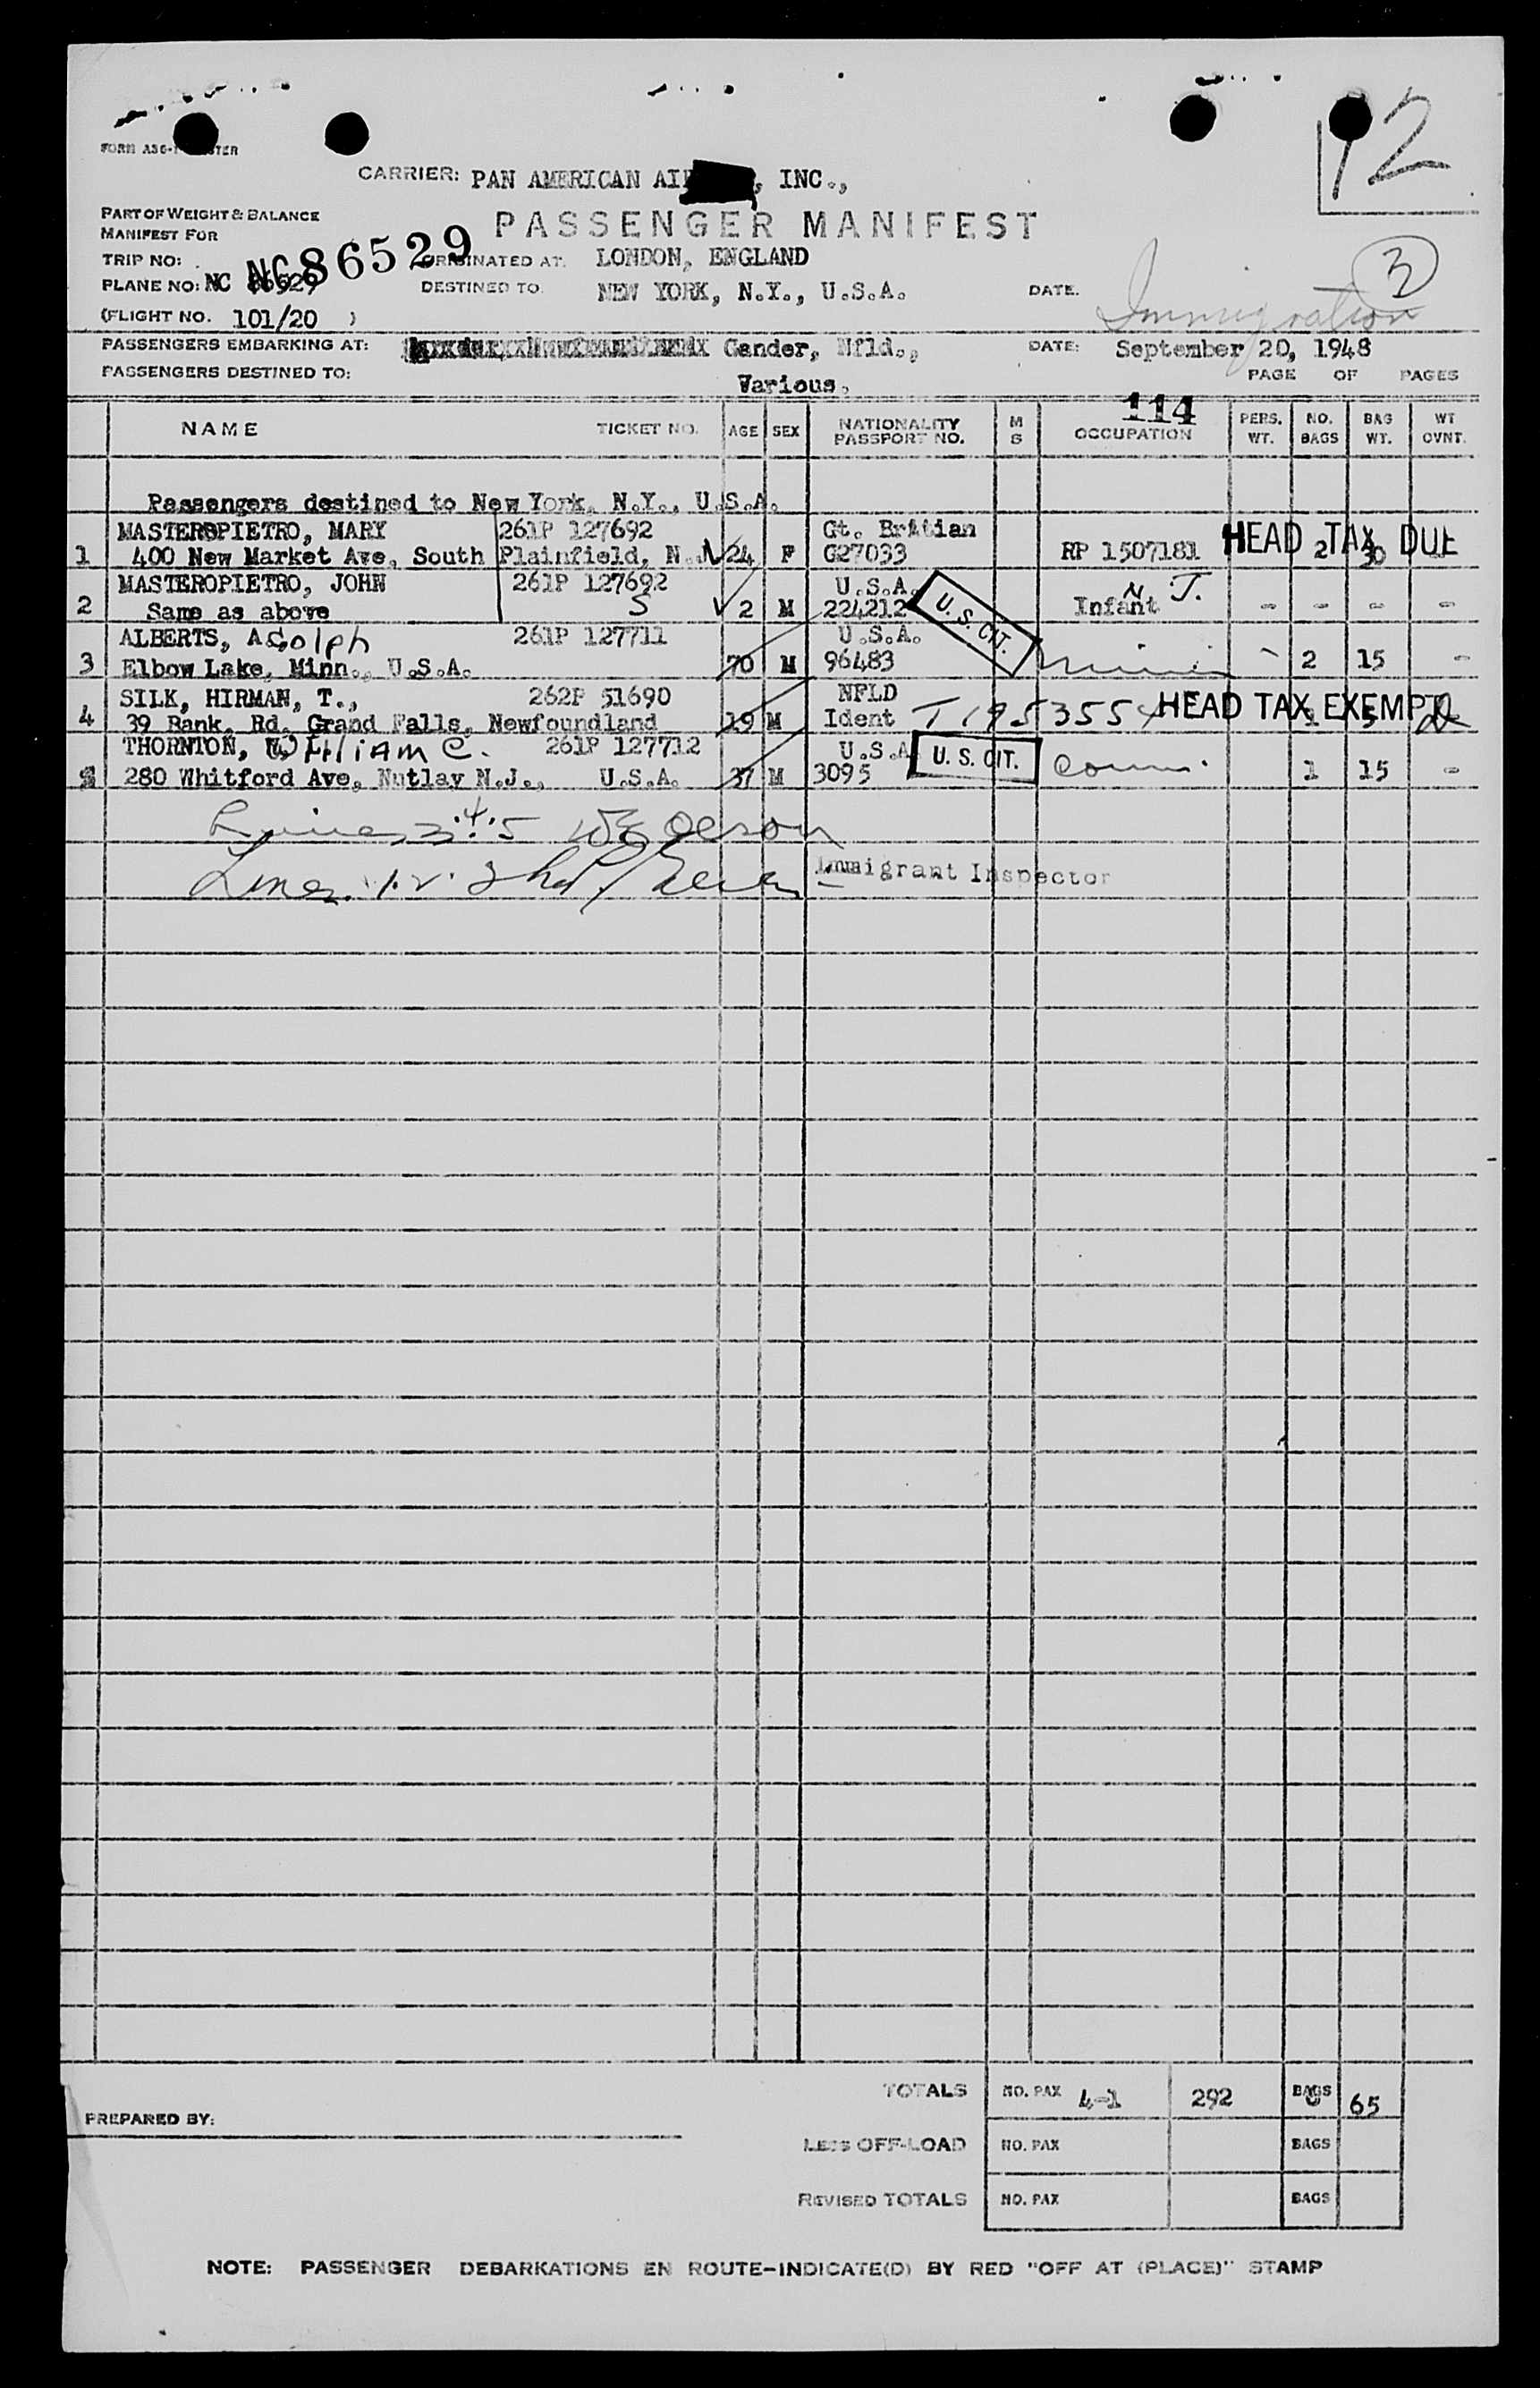 12
FORM ASG-1 STER
CARRIER: PAN AMERICAN AI , INC.,
PART OF WEIGHT & BALANCE
MANIFEST FOR
PASSENGER MANIFEST
TRIP NO: NC 86529 ORIGINATED AT. LONDON, ENGLAND
3
PLANE NO: NC 86529 DESTINED TO. NEW YORK, N.Y., U.S.A. DATE. Immigration
(FLIGHT NO. 101/20 )
PASSENGERS EMBARKING AT: Gander, Nfld., DATE: September 20, 1948
PASSENGERS DESTINED TO: Various. PAGE OF PAGES
114
NAME TICKET NO. AGE SEX NATIONALITY PASSPORT NO. M S OCCUPATION PERS. WT. NO. BAGS BAG WT. WT OVNT.
Passengers destined to New York, N.Y., U.S.A.
MASTEROPIETRO, MARY 261P 127692 Gt. Britian HEAD TAX DUE
1 400 New Market Ave, South Plainfield, N.J. 24 F G27033 RP 1507181 2 30
MASTEROPIETRO, JOHN 261P 127692 U.S.A. U. S. CIT. N. J.
2 Same as above S 2 M 224212 Infant - - - -
ALBERTS, Adolph 261P 127711 U.S.A.
3 Elbow Lake, Minn., U.S.A. 70 M 96483 - 2 15 -
SILK, HIRMAN, T., 262P 51690 NFLD HEAD TAX EXEMPT
4 39 Bank, Rd, Grand Falls, Newfoundland 19 M Ident T 195355 1 5
THORNTON, William C. 261P 127712 U.S.A U. S. CIT.
5 280 Whitford Ave, Nutlay N.J., U.S.A. 37 M 3095 1 15 -
Lines 3.4.5
Lines 1.2.
Immigrant Inspector
TOTALS NO. PAX 4-1 292 BAGS 6 65
PREPARED BY:
LESS OFF-LOAD NO. PAX BAGS
REVISED TOTALS NO. PAX BAGS
NOTE: PASSENGER DEBARKATIONS EN ROUTE-INDICATE(D) BY RED "OFF AT (PLACE)" STAMP